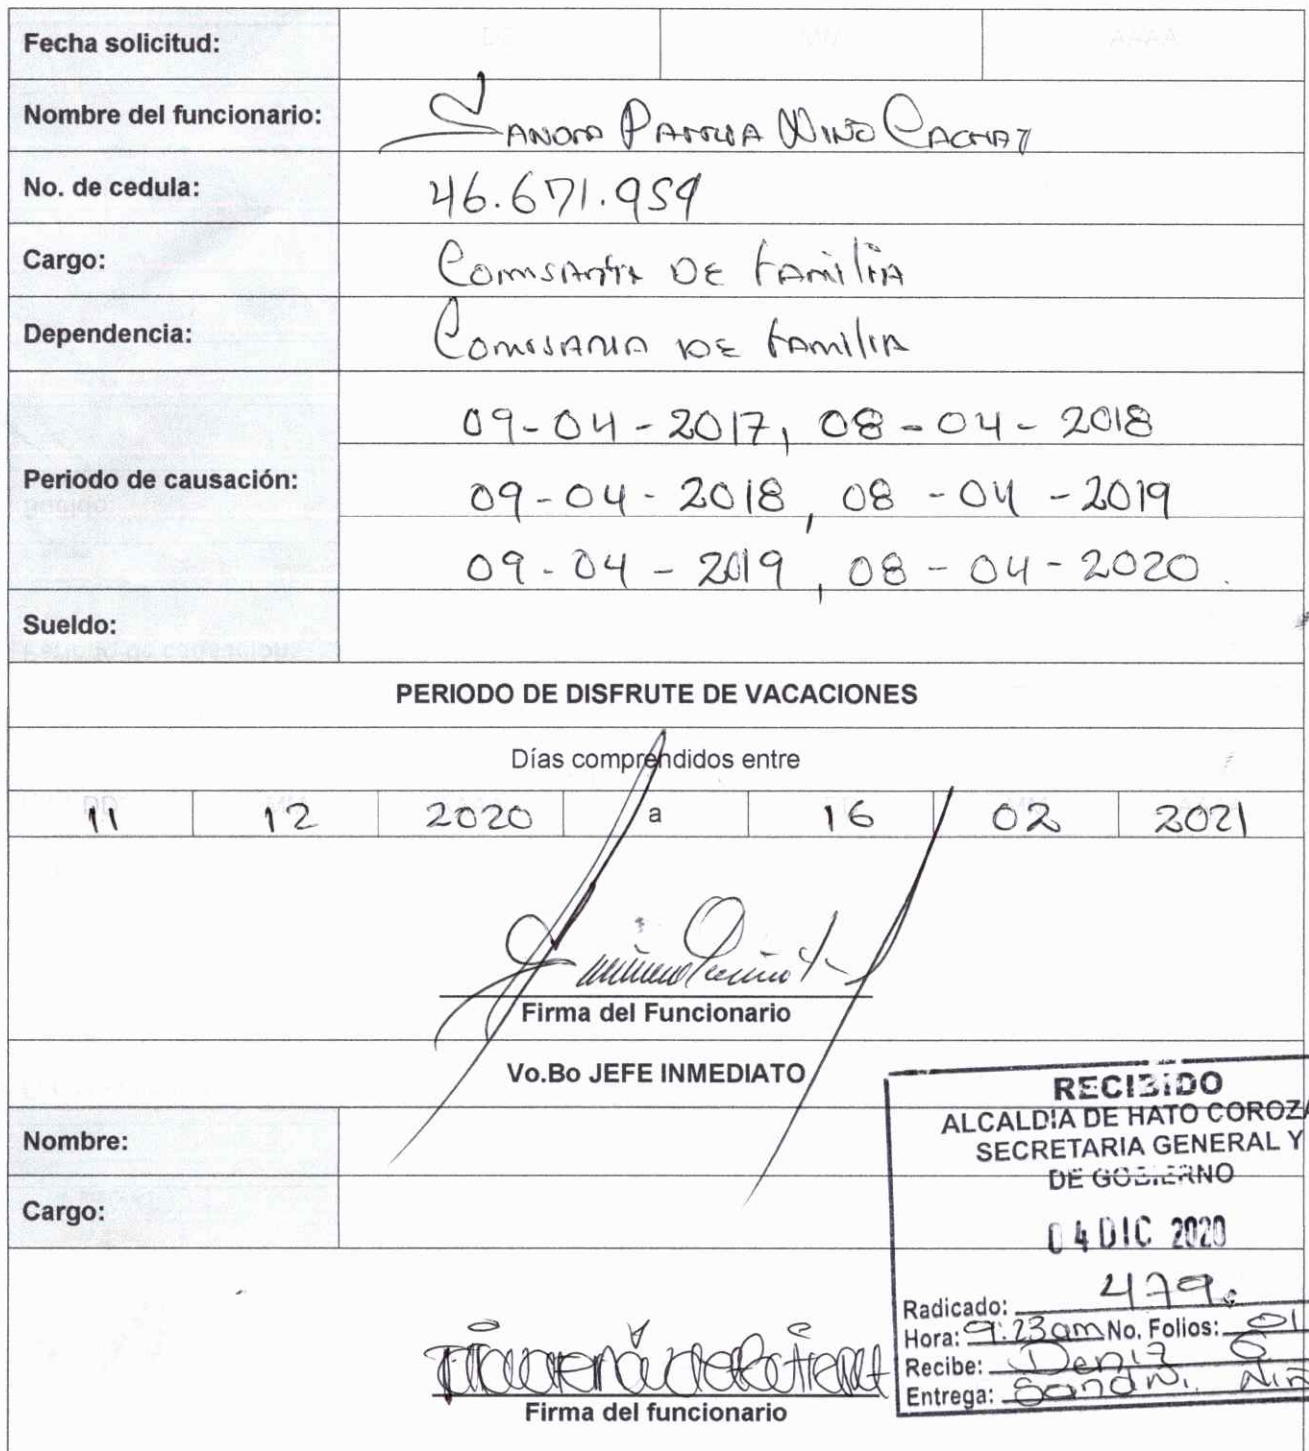 Fecha solicitud: DD MM AAAA
Nombre del funcionario: SANDRA PATRICIA NIÑO CACHAY
No. de cedula: 46.671.959
Cargo: COMISARIA DE FAMILIA
Dependencia: COMISARIA DE FAMILIA
09-04-2017, 08-04-2018
Periodo de causación:
09-04-2018, 08-04-2019
09-04-2019, 08-04-2020.
Sueldo:
PERIODO DE DISFRUTE DE VACACIONES
Días comprendidos entre
11 12 2020 a 16 02 2021
Firma del Funcionario
Vo.Bo JEFE INMEDIATO
Nombre:
Cargo:
RECIBIDO
ALCALDIA DE HATO COROZA
SECRETARIA GENERAL Y
DE GOBIERNO
04 DIC 2020
Radicado: 479.
Hora: 9:23am No. Folios: 01
Recibe: Deniz
Entrega: Sandra Niñ
Firma del funcionario